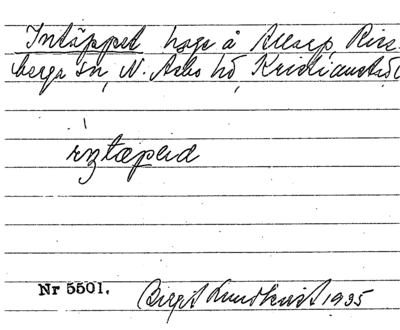 Intäppet hage å Allarp, Riss-
berga sn, N. Åsbo hd, Kristianstads
ıŋtæpəd
Nr 5501.
Birgit Lundkvist 1935